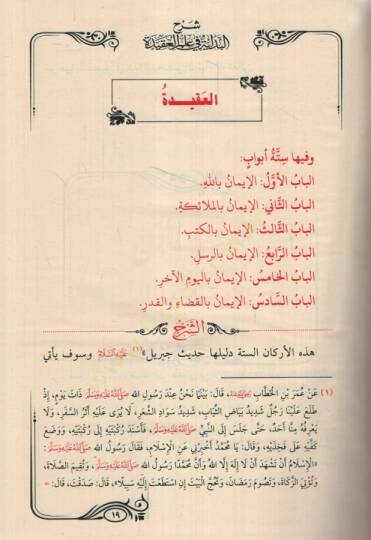 شرح
البداية في علم العقيدة
العقيدةُ
وفيها ستَّةُ أبوابٍ:
البابُ الأوَّلُ: الإيمانُ باللهِ.
البابُ الثَّاني: الإيمانُ بالملائكةِ.
البابُ الثَّالثُ: الإيمانُ بالكتبِ.
البابُ الرَّابعُ: الإيمانُ بالرسلِ.
البابُ الخامسُ: الإيمانُ باليومِ الآخرِ.
البابُ السَّادسُ: الإيمانُ بالقضاءِ والقدرِ.
الشرح
هذه الأركان الستة دليلها حديث جبريل(١) عليه السلام وسوف يأتي
(١) عَنْ عُمَرَ بْنِ الخَطَّابِ رضي الله عنه، قَالَ: بَيْنَمَا نَحْنُ عِنْدَ رَسُولِ الله صلى الله عليه وسلم ذَاتَ يَوْمٍ، إِذْ
طَلَعَ عَلَيْنَا رَجُلٌ شَدِيدُ بَيَاضِ الثِّيَابِ، شَدِيدُ سَوَادِ الشَّعَرِ، لَا يُرَى عَلَيْهِ أَثَرُ السَّفَرِ، وَلَا
يَعْرِفُهُ مِنَّا أَحَدٌ، حَتَّى جَلَسَ إِلَى النَّبِيِّ صلى الله عليه وسلم، فَأَسْنَدَ رُكْبَتَيْهِ إِلَى رُكْبَتَيْهِ، وَوَضَعَ
كَفَّيْهِ عَلَى فَخِذَيْهِ، وَقَالَ: يَا مُحَمَّدُ أَخْبِرْنِي عَنِ الْإِسْلَامِ، فَقَالَ رَسُولُ الله صلى الله عليه وسلم:
«الْإِسْلَامُ أَنْ تَشْهَدَ أَنْ لَا إِلَهَ إِلَّا اللهُ وَأَنَّ مُحَمَّدًا رَسُولُ الله صلى الله عليه وسلم، وَتُقِيمَ الصَّلَاةَ،
وَتُؤْتِيَ الزَّكَاةَ، وَتَصُومَ رَمَضَانَ، وَتَحُجَّ الْبَيْتَ إِنِ اسْتَطَعْتَ إِلَيْهِ سَبِيلًا»، قَالَ: صَدَقْتَ، قَالَ: =
١٩